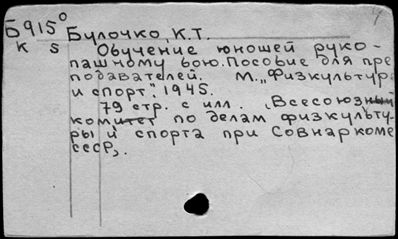 Б915° Булочко, К.Т.
K s Обучение юношей руко-
пашному бою. Пособие для пре
подавателей. М. „Физкультура
и спорт". 1945.
79 стр. с илл. (Всесоюзный
комитет по делам физкульту-
ры и спорта при Совнаркоме
СССР).